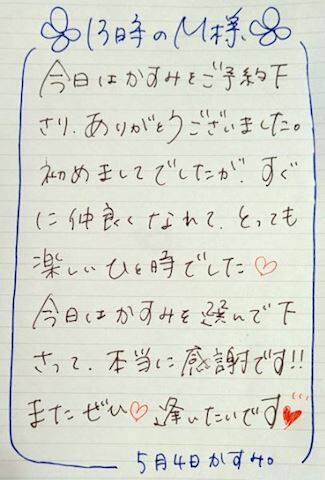 13時のM様
今日はかすみをご予約下
さり、ありがとうございました。
初めましてでしたが、すぐ
に仲良くなれて、とっても
楽しいひと時でした♡
今日はかすみを選んで下
さって、本当に感謝です!!
またぜひ♡逢いたいです♥
5月4日かすみ。